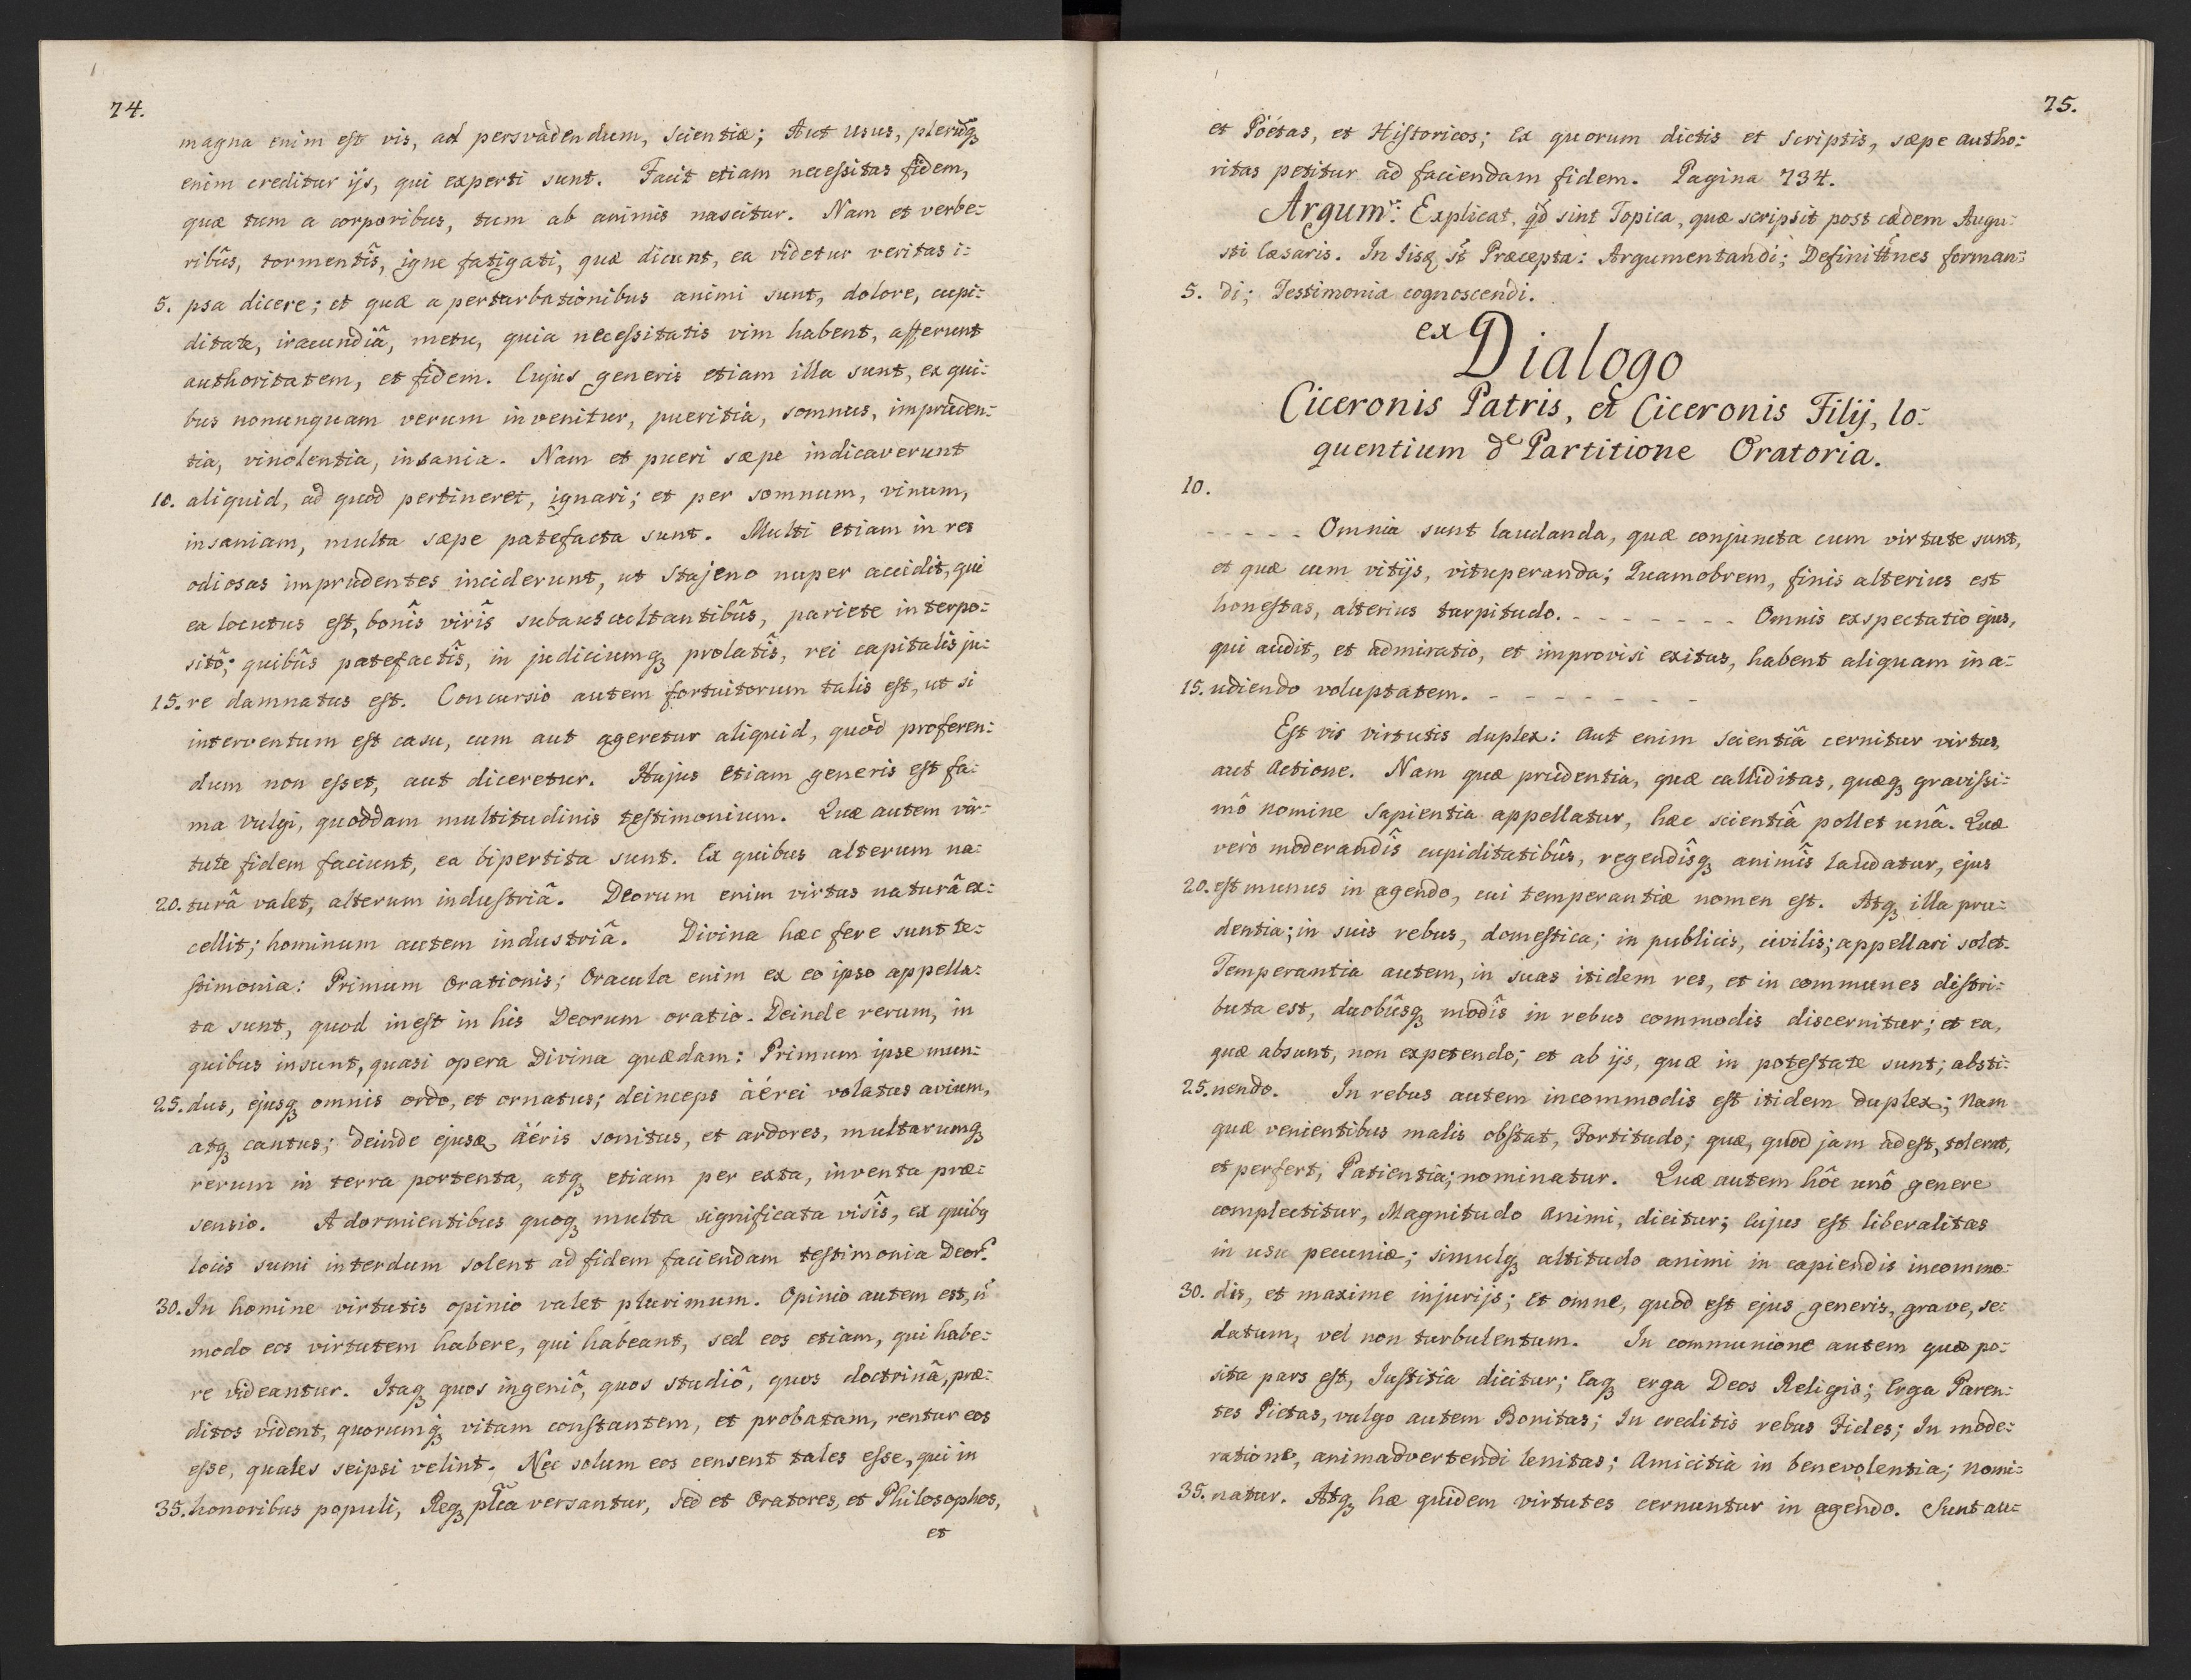 74.
magna enim est vis, ad persvadendum, scientiæ; Aut usus, plerũqꝫ
enim creditur ijs, qui experti sunt. Facit etiam necessitas fidem,
quæ tum a corporibus, tum ab animis nascitur. Nam et verbe:
ribûs, tormentîs, igne fatigati, quæ dicunt, ea videtur veritas i:
5. psa dicere; et quæ a perturbationibus animi sunt, dolore, cupi:
ditate, iracundiâ, metu, quia necessitatis vim habent, afferunt
authoritatem, et fidem. Cujus generis etiam illa sunt, ex qui:
bus nonunquam verum invenitur, pueritia, somnus, impruden:
tia, vinolentia, insania. Nam et pueri sæpe indicaverunt
10. aliquid, ad quod pertineret, ignari; et per somnum, vinum,
insaniam, multa sæpe patefacta sunt. Multi etiam in res
odiosas imprudentes inciderunt, ut Stajeno nuper accidit, qui
ea locutus est, bonîs virîs subauscultantibûs, pariete interpo:
sitô; quibûs patefactîs, in judiciumqꝫ prolatîs, rei capitalis ju:
15. re damnatus est. Concursio autem fortuitorum talis est, ut si
interventum est casu, cum aut ageretur aliquid, quod proferen:
dum non esset, aut diceretur. Hujus etiam generis est fa:
ma vulgi, quoddam multitudinis testimonium. Quæ autem vir:
tute fidem faciunt, ea bipertita sunt. Ex quibus alterum na:
20. turâ valet, alterum industriâ. Deorum enim virtus naturâ ex:
cellit; hominum autem industriâ. Divina hæc fere sunt te:
stimonia: Primum Orationis; Oracula enim ex eo ipso appella:
ta sunt, quod inest in his Deorum oratio. Deinde rerum, in
quibus insunt, quasi opera Divina quædam: Primum ipse mun:
25. dus, ejusqꝫ omnis ordo, et ornatus; deinceps äérei volatus avium,
atqꝫ cantus; deinde ejusdē äéris sonitus, et ardores, multarumqꝫ
rerum in terra portenta, atqꝫ etiam per exta, inventa præ:
sensio. A dormientibus quoqꝫ multa significata visîs, ex quibꝰ
locis sumi interdum solent ad fidem faciendam testimonia Deor.
30. In homine virtutis opinio valet plurimum. Opinio autem est, ñ
modo eos virtutem habere, qui habeant, sed eos etiam, qui habe:
re videantur. Itaqꝫ quos ingeniô, quos studiô, quos doctrinâ, præ:
ditos vident, quorumqꝫ vitam constantem, et probatam, rentur eos
esse, quales seipsi velint. Nec solum eos censent tales esse, qui in
35. honoribus populi, Reqꝫ plĩca versantur, sed et Oratores, et Philosophos,
et
75.
et Poëtas, et Historicos; Ex quorum dictis et Scriptis, sæpe autho:
ritas petitur ad faciendam fidem. Pagina 734.
Argumt: Explicat, qd sint Topica, quæ scripsit post cædem Augu:
sti Cæsaris. In Iisqꝫ st Præcepta: Argumentandi; Definitines forman:
5. di; Testimonia cognoscendi.
ex Dialogo
Ciceronis Patris, et Ciceronis Filij, lo:
quentium de Partitione Oratoria.
10.
- - - - - Omnia sunt laudanda, quæ conjuncta cum virtute sunt,
et quæ cum vitijs, vituperanda; Quamobrem, finis alterius est
honestas, alterius turpitudo. - - - - - - - Omnis exspectatio ejus,
qui audit, et admiratio, et improvisi exitus, habent aliquam in a:
15. udiendo voluptatem. - - - - - - -
Est vis virtutis duplex: Aut enim scientiâ cernitur virtus,
aut Actione. Nam quæ prudentia, quæ calliditas, quæqꝫ gravissi:
mô nomine Sapientia appellatur, hæc scientiâ pollet unâ. Quæ
verò moderandîs cupiditatibûs, regendîsqꝫ animîs laudatur, ejus
20. est munus in agendo, cui temperantiæ nomen est. Atqꝫ illa pru:
dentia; in suis rebus, domestica; in publicis, civilis; appellari solet.
Temperantia autem, in suas itidem res, et in communes distri:
buta est, duobûsqꝫ modîs in rebus commodis discernitur; et ea,
quæ absunt, non expetendo; et ab ijs, quæ in potestate sunt; absti:
25. nendo. In rebus autem incommodis est itidem duplex; Nam
quæ venientibus malis obstat, Fortitudo; quæ, quod jam adest, tolerat,
et perfert, Patientia; nominatur. Quæ autem hôc unô genere
complectitur, Magnitudo Animi, dicitur; Cujus est liberalitas
in usu pecuniæ; simulqꝫ altitudo animi in capiendis incommo:
30. dis, et maxime injurijs; Et omne, quod est ejus generis, grave, se:
datum, vel non turbulentum. In communione autem quæ po:
sita pars est, Justitia dicitur; Eaqꝫ erga Deos Religio; Erga Paren:
tes Pietas, vulgo autem Bonitas; In creditis rebus Fides; In mode:
ratione, animadvertendi lenitas; Amicitia in benevolentia; nomi:
35. natur. Atqꝫ hæ quidem virtutes cernuntur in agendo. Sunt au: